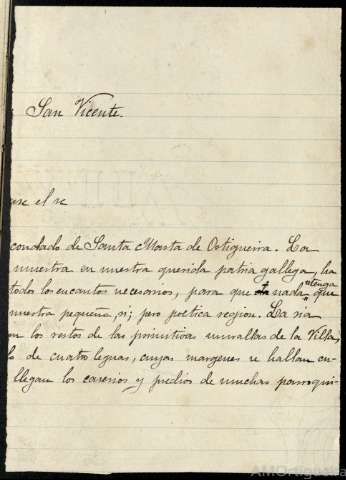 San Vicente.
use el se
condado de Santa Marta de Ortigueira. La
muestra en nuestra querida patria gallega, ha
todos los encantos necesarios, para que nada tenga que
nuestra pequeña, si; pero poética region. La ria
n los restos de las primitivas murallas de la Villa,
o de cuatro leguas, cuyas margenes se hallan cu-
llegan los caserios y predios de muchas parroqui-
AMOrtigueira